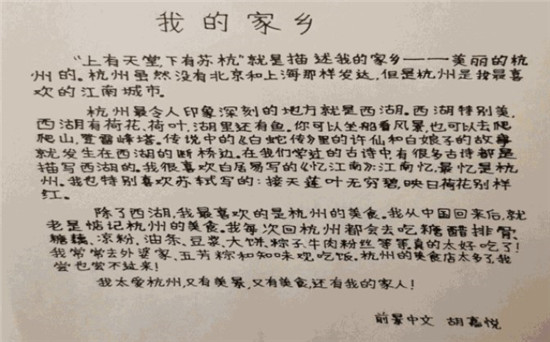 我的家乡
“上有天堂,下有苏杭”就是描述我的家乡——美丽的杭
州的。杭州虽然没有北京和上海那样发达,但是杭州是我最喜
欢的江南城市。
杭州最令人印象深刻的地方就是西湖。西湖特别美,
西湖有荷花、荷叶,湖里还有鱼。你可以坐船看风景,也可以去爬
爬山,登雷峰塔。传说中的《白蛇传》里的许仙和白娘子的故事
就发生在西湖的断桥边。在我们学过的古诗中有很多古诗都是
描写西湖的。我很喜欢白居易写的《忆江南》:江南忆,最忆是杭
州。我也特别喜欢苏轼写的:接天莲叶无穷碧,映日荷花别样
红。
除了西湖,我最喜欢的是杭州的美食。我从中国回来后,就
老是惦记杭州的美食。我每次回杭州都会去吃糖醋排骨、
糖藕、凉粉、油条、豆浆、大饼、粽子、牛肉粉丝等等真的太好吃了!
我常常去外婆家、五芳粽和知味观吃饭。杭州的美食店太多了,我
尝也尝不过来!
我太爱杭州,又有美景,又有美食,还有我的家人!
前景中文 胡嘉悦